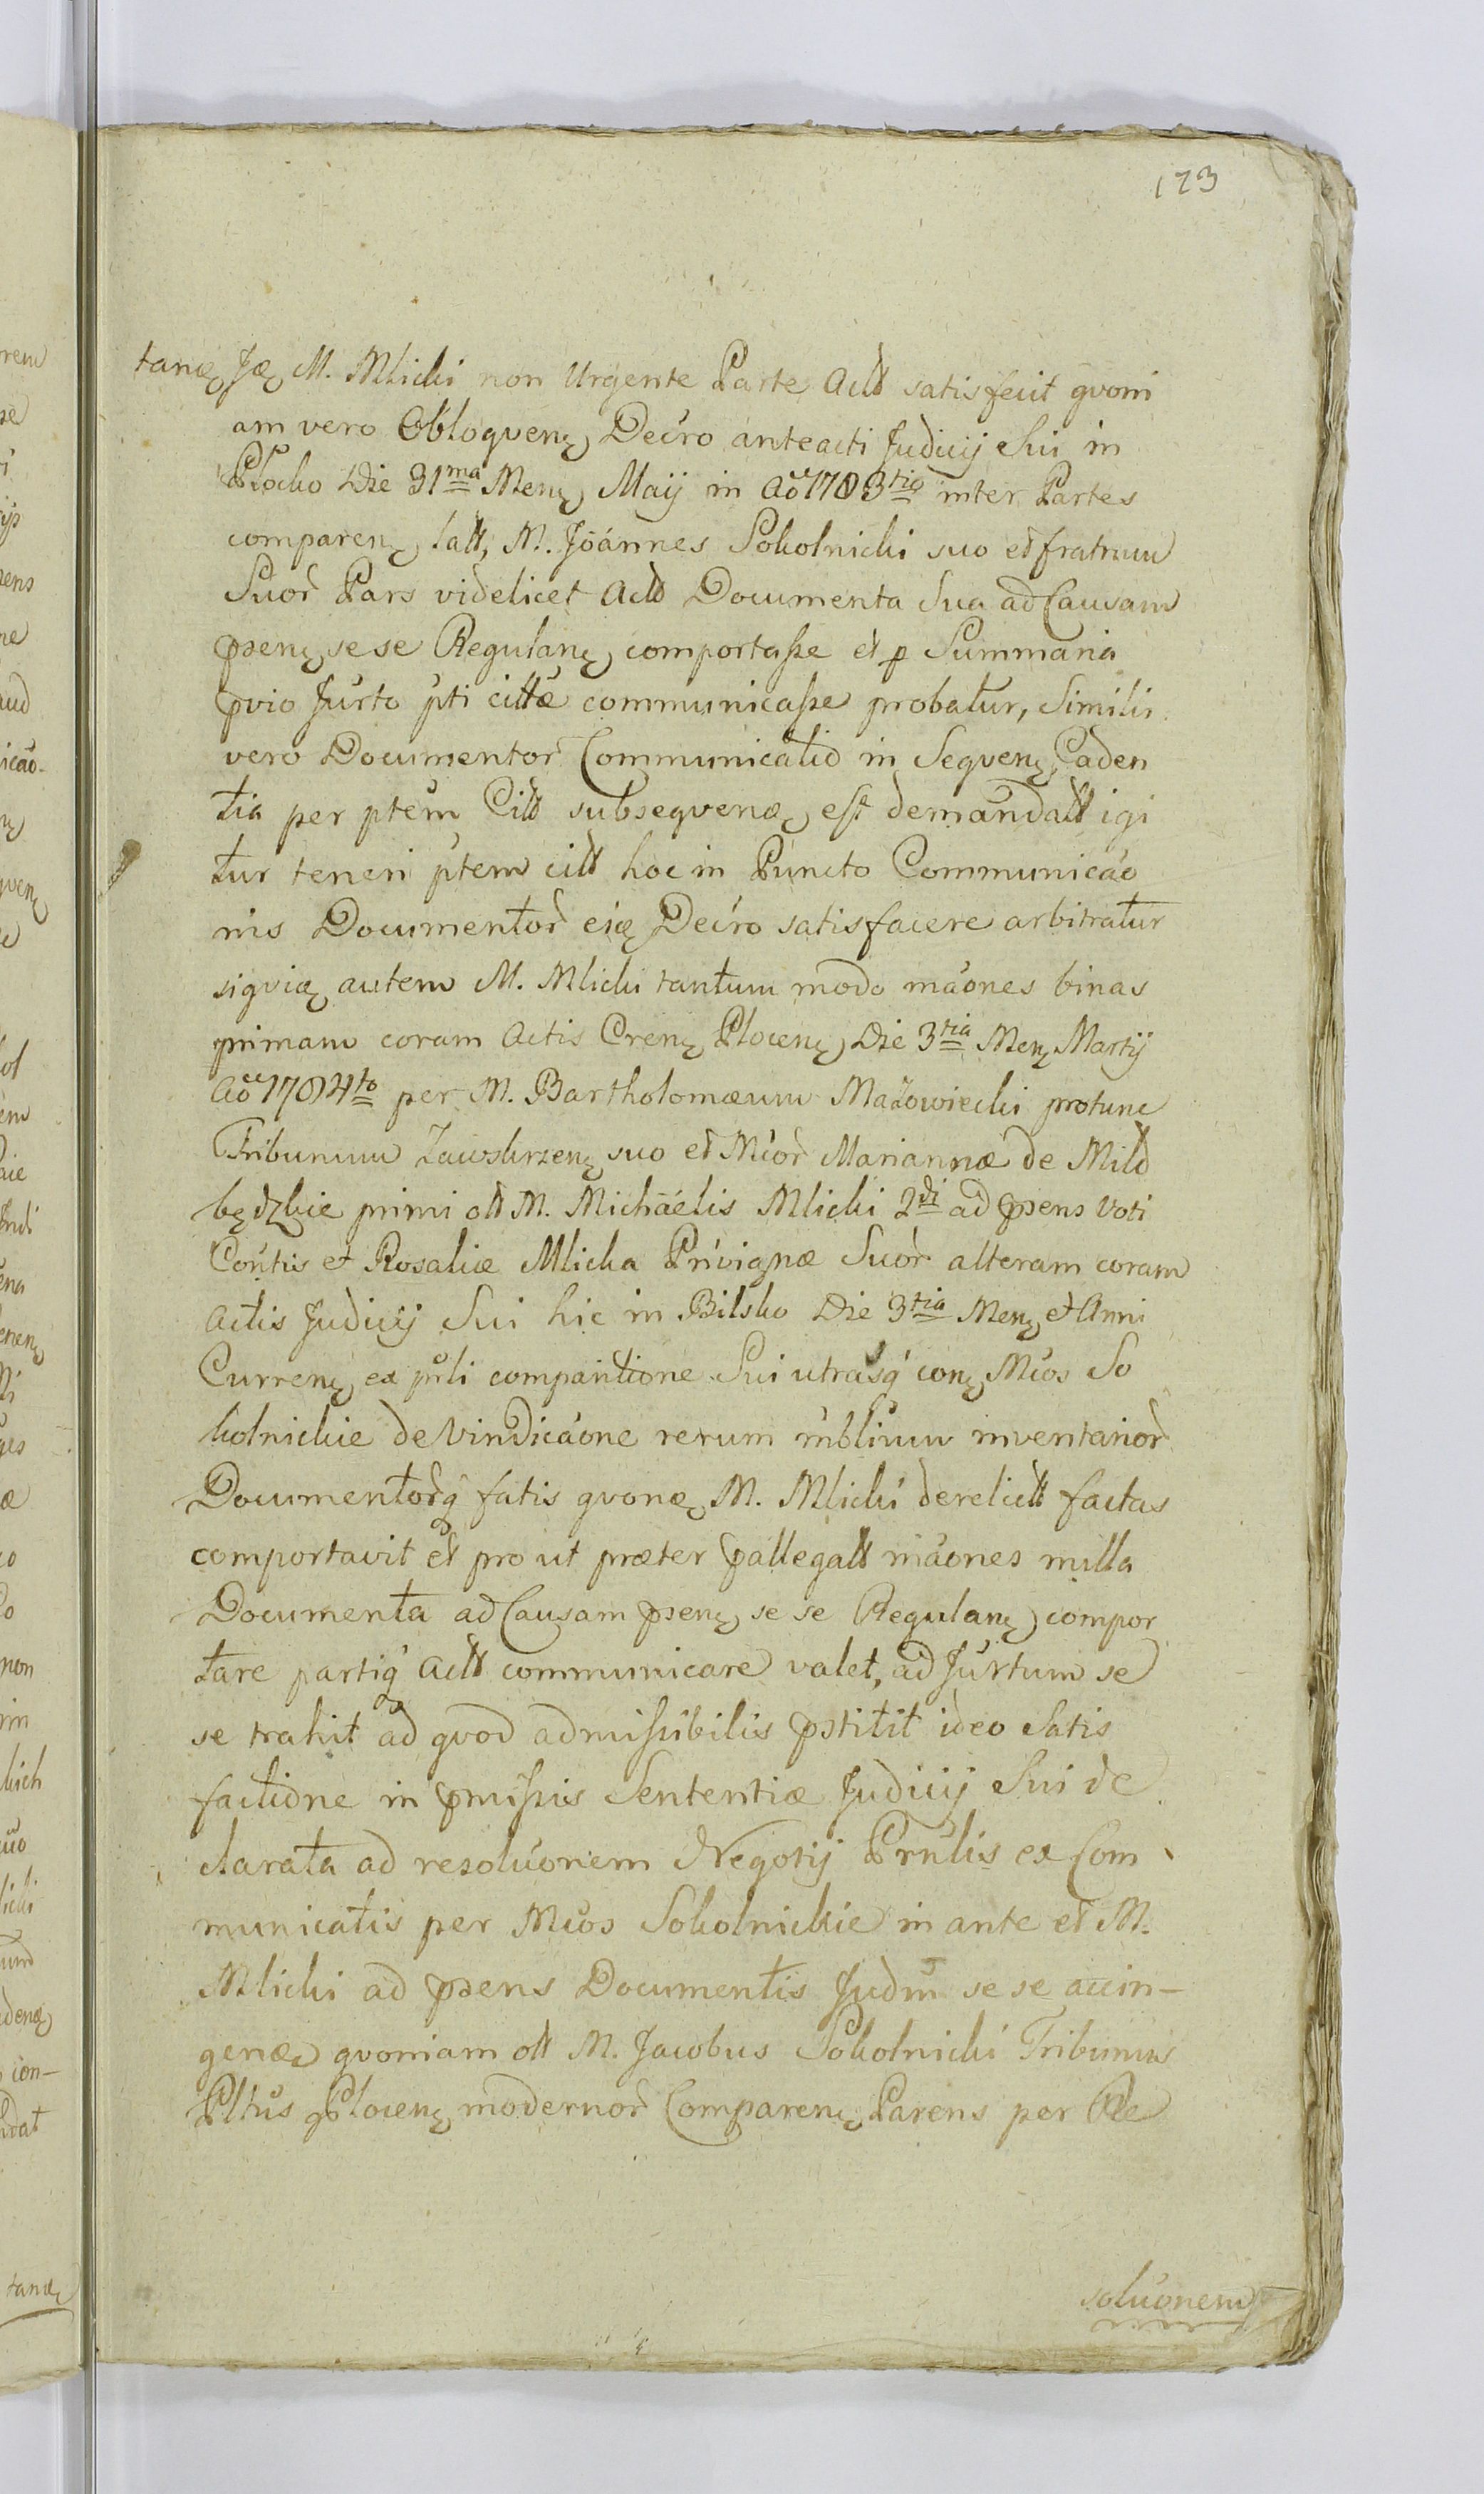 173
tanę Ję M. Mlicki non Urgente Parte Actt satisfecit qvoni
am vero Obloqvenę Decro anteacti Judicij Sui in
Płocko Die 31ma Menę Maij in Aõ 1783tio inter Partes
comparenę latt, M. Joánnes Sokolnicki suo et fratrum
Suor Pars videlicet Actt Documenta Sua ad Causam
pxenę se se Regulanę comportaſse et p Summaria
pvio Jurto pti cittæ communicaſse probatur, Similis
vero Documentor Communicatio in Seqvenę Caden
tia per ptem Citt subseqvenæ eſt demandatt igi
tur teneri ptem citt hoc in Puncto Communicáo
nis Documentor eię Decro satisfacere arbitratur
siqvię autem M. Mlicki tantum modo máones binas
primam coram Actis Crenę Plocenę Die 3tia Menę Martij
Aõ 1784to per M. Bartholomæum Mazowiecki protunc
Tribunum Zawskrzenę suo et Mcor Mariannæ de Mild
będzkie primi ott M. Micháelis Mlicki 2di ad pxens Voti
Contis et Rosaliæ Mlicka Privignæ Suor alteram coram
Actis Judicij Sui hic in Bilsko Die 3tia Menę et Anni
Currenę ex prli comparitione Sui utrasq́ conę Mcos So
kolnickie de Vindicáone rerum mblium inventarior
Documentorq́ fatis qvonę M. Mlicki derelictt factas
comportavit et pro ut præter pallegatt máones nulla
Documenta ad Causam pxenę se se Regulanę compor
tare partiq́ Actt communicare valet, ad Jurtum se
se trahit ad qvod admiſsibilis pstitit ideo Satis
factione in pmiſsis Sententiæ Judicij Sui de
clarata ad resolucionem Negotij Prnlis ex Com
municatis per Mcos Sokolnickie in ante et M.
Mlicki ad pxens Documentis Judm se se accin-
genæ qvoniam ott M. Jacobus Sokolnicki Tribunus
Pltus Plocenę modernor Comparenę Parens per Re
soluonem